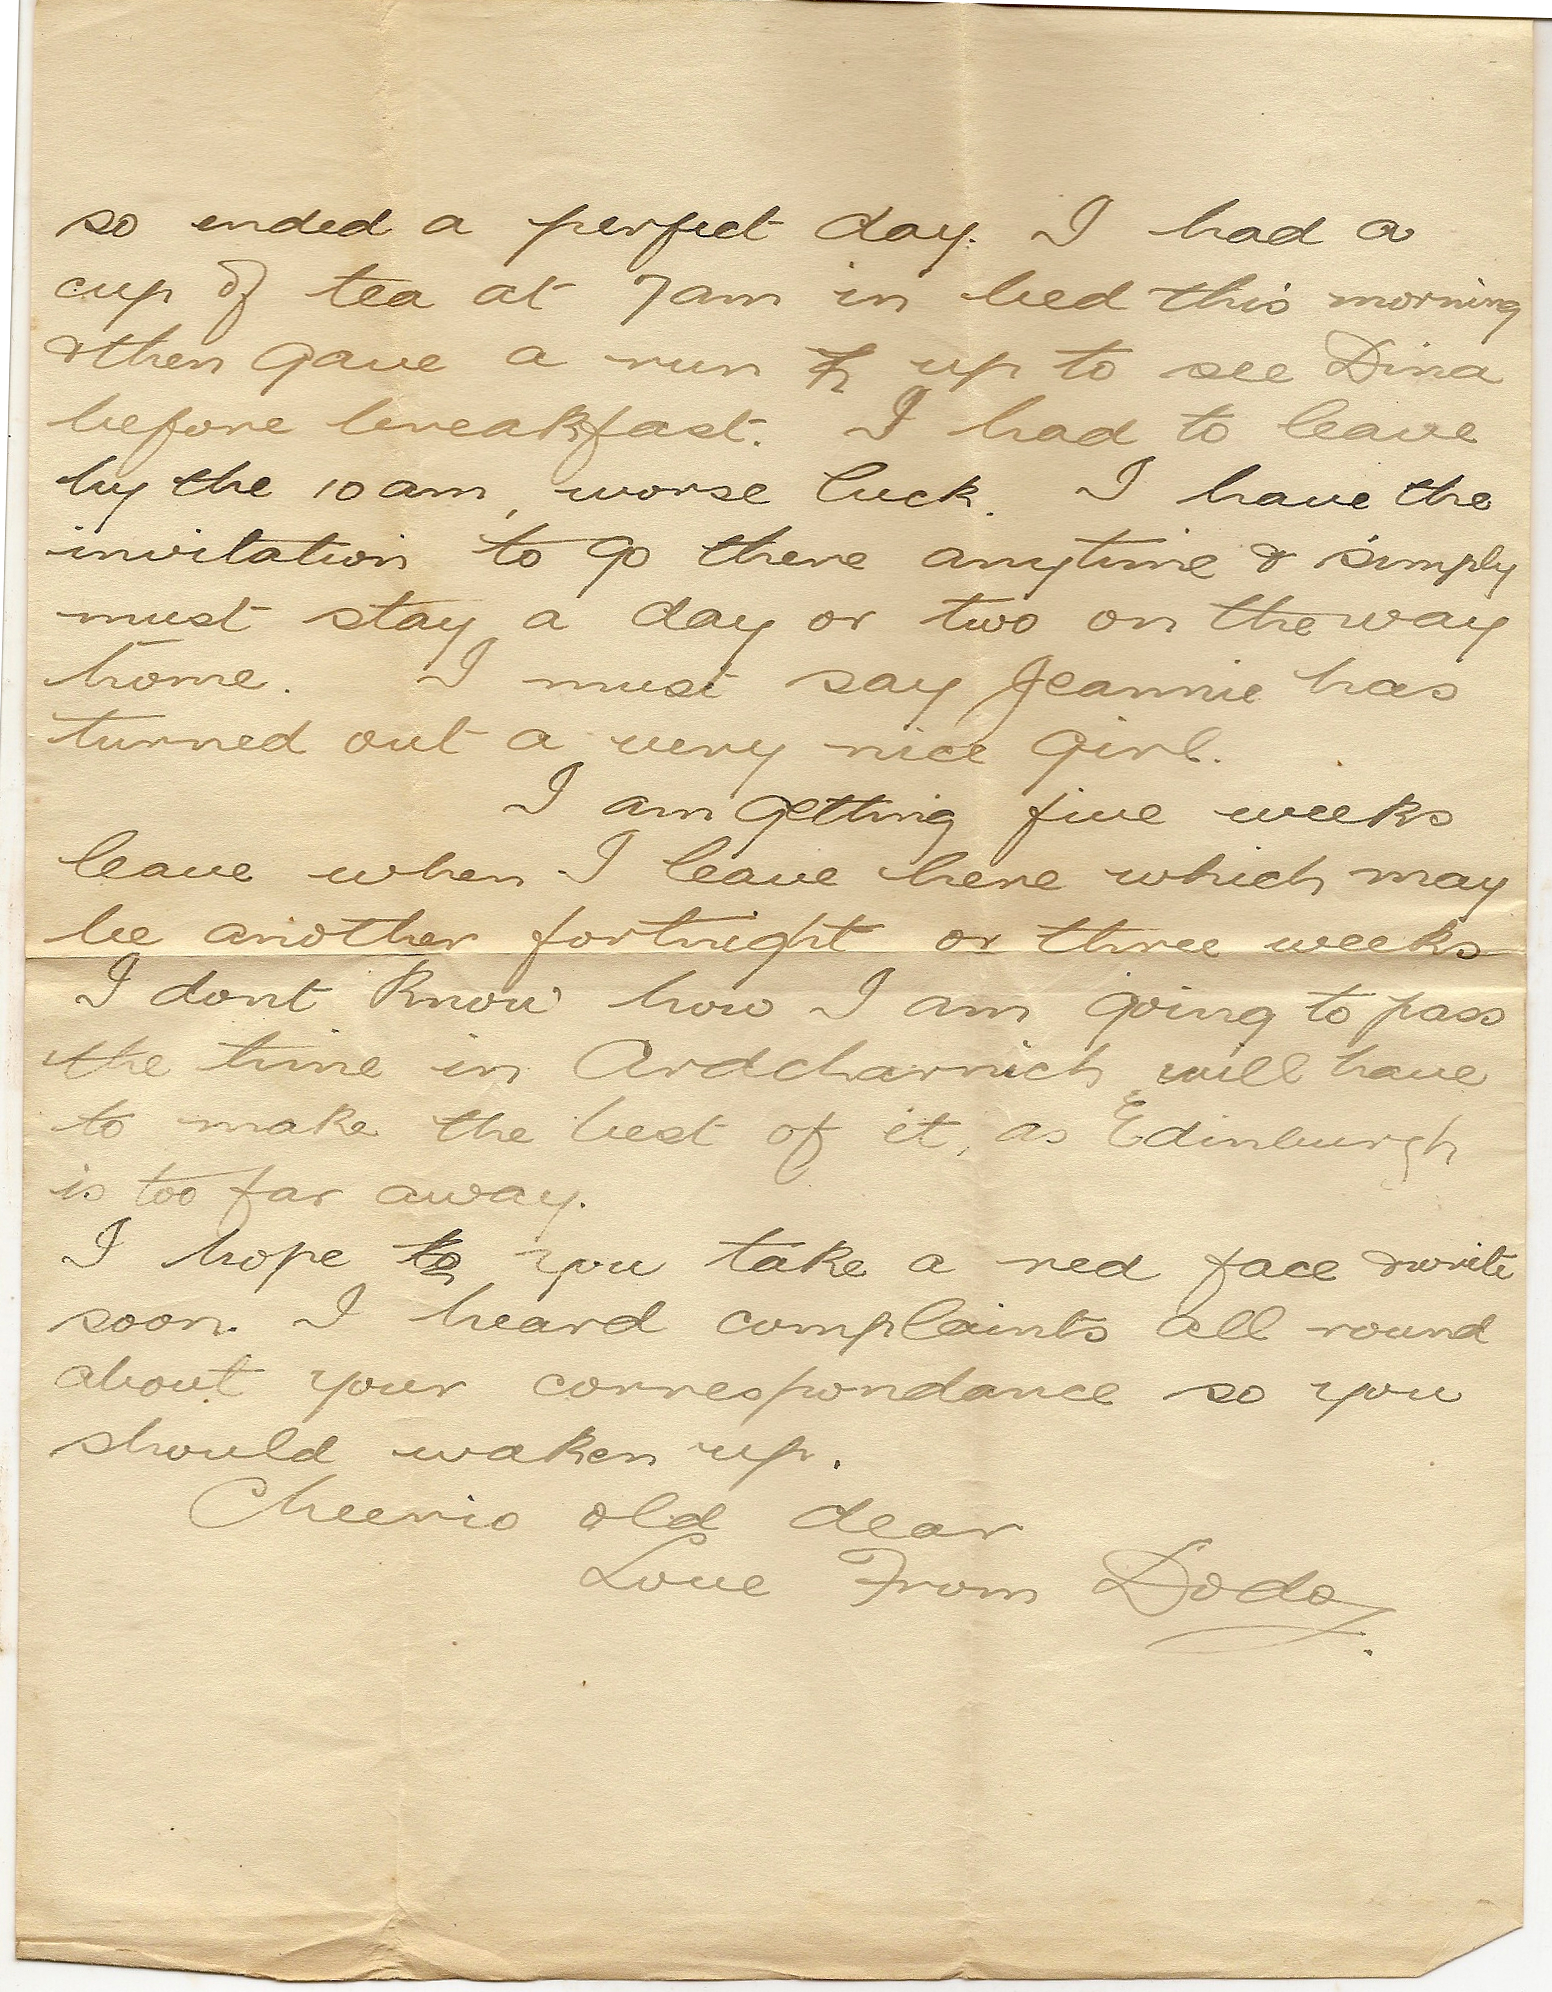 so ended a perfect day. I had a
cup of tea at 7am in bed this morning
& then gave a run up to see Dina
before breakfast. I had to leave
by the 10 am, worse luck. I have the
invitation to go there anytime & simply
must stay a day or two on the way
home. I must say Jeannie has
turned out a very nice girl.
I am getting five weeks
leave when I leave here which may
be another fortnight or three weeks
I dont know how I am going to pass
the time in Ardcharnich will have
to make the best of it, as Edinburgh
is too far away.
I hope you take a red face & write
soon. I heard complaints all round
about your correspondance so you
should waken up.
Cheerio old dear
Love From Dodo.